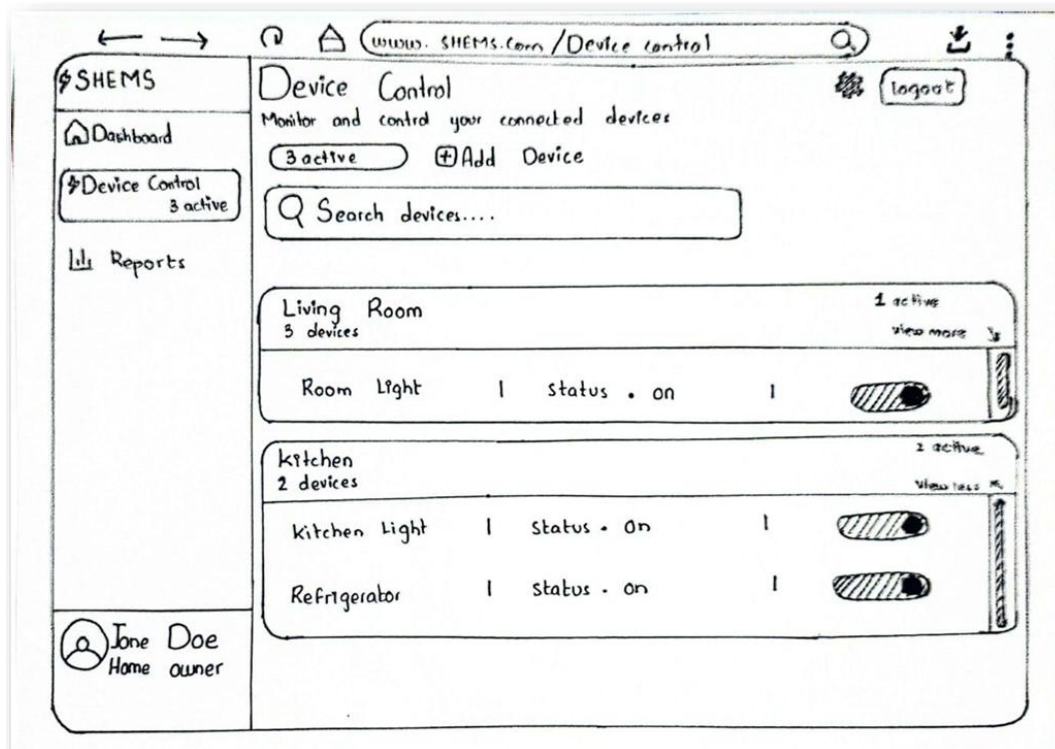 www. SHEMs.com /Device control
SHEMS
Dashboard
Device Control
3 active
Reports
Jane Doe
Home owner
Device Control
logout
Monitor and control your connected devices
3 active
Add Device
Search devices....
Living Room
3 devices
1 active
view more
Room Light | Status . on |
kitchen
2 devices
2 active
View less
kitchen Light | Status . On |
Refrigerator | Status . On |